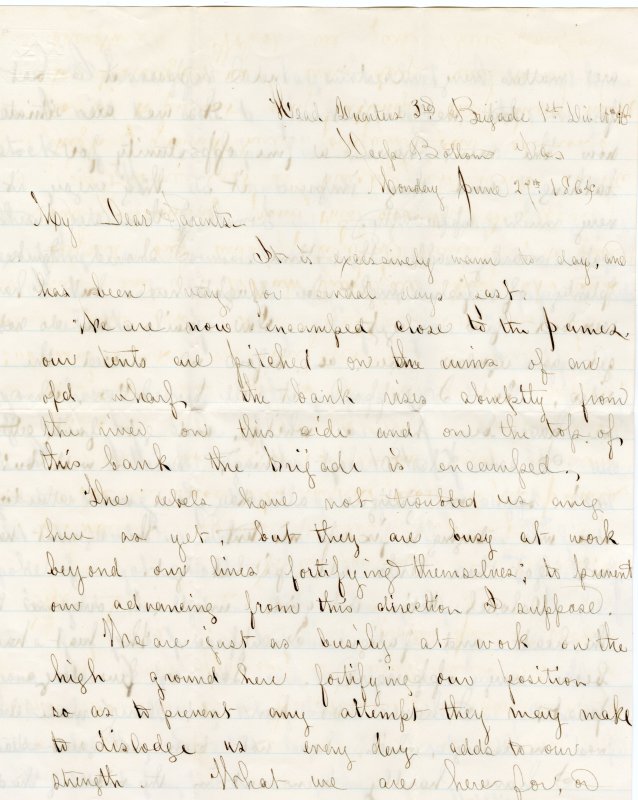 Head Quarters 3rd Brigade 1st Div
Deep Bottom Va
Monday June 27th 186
My Dear Parents
It is excessively warm to day, and
has been very for several days past.
We are now encamped close to the James.
our tents are pitched on the ruins of an
old wharf, the bank rises abruptly from
the river on this side and on the top of
this bank the brigade is encamped.
The rebels have not troubled us any
here as yet, but they are busy at work
beyond our lines fortifying themselves, to prevent
our advancing from this direction I suppose.
We are just as busily at work on the
high ground here fortifying our position
so as to prevent any attempt they may make
to dislodge us every day adds to our
strength What we are here for, or